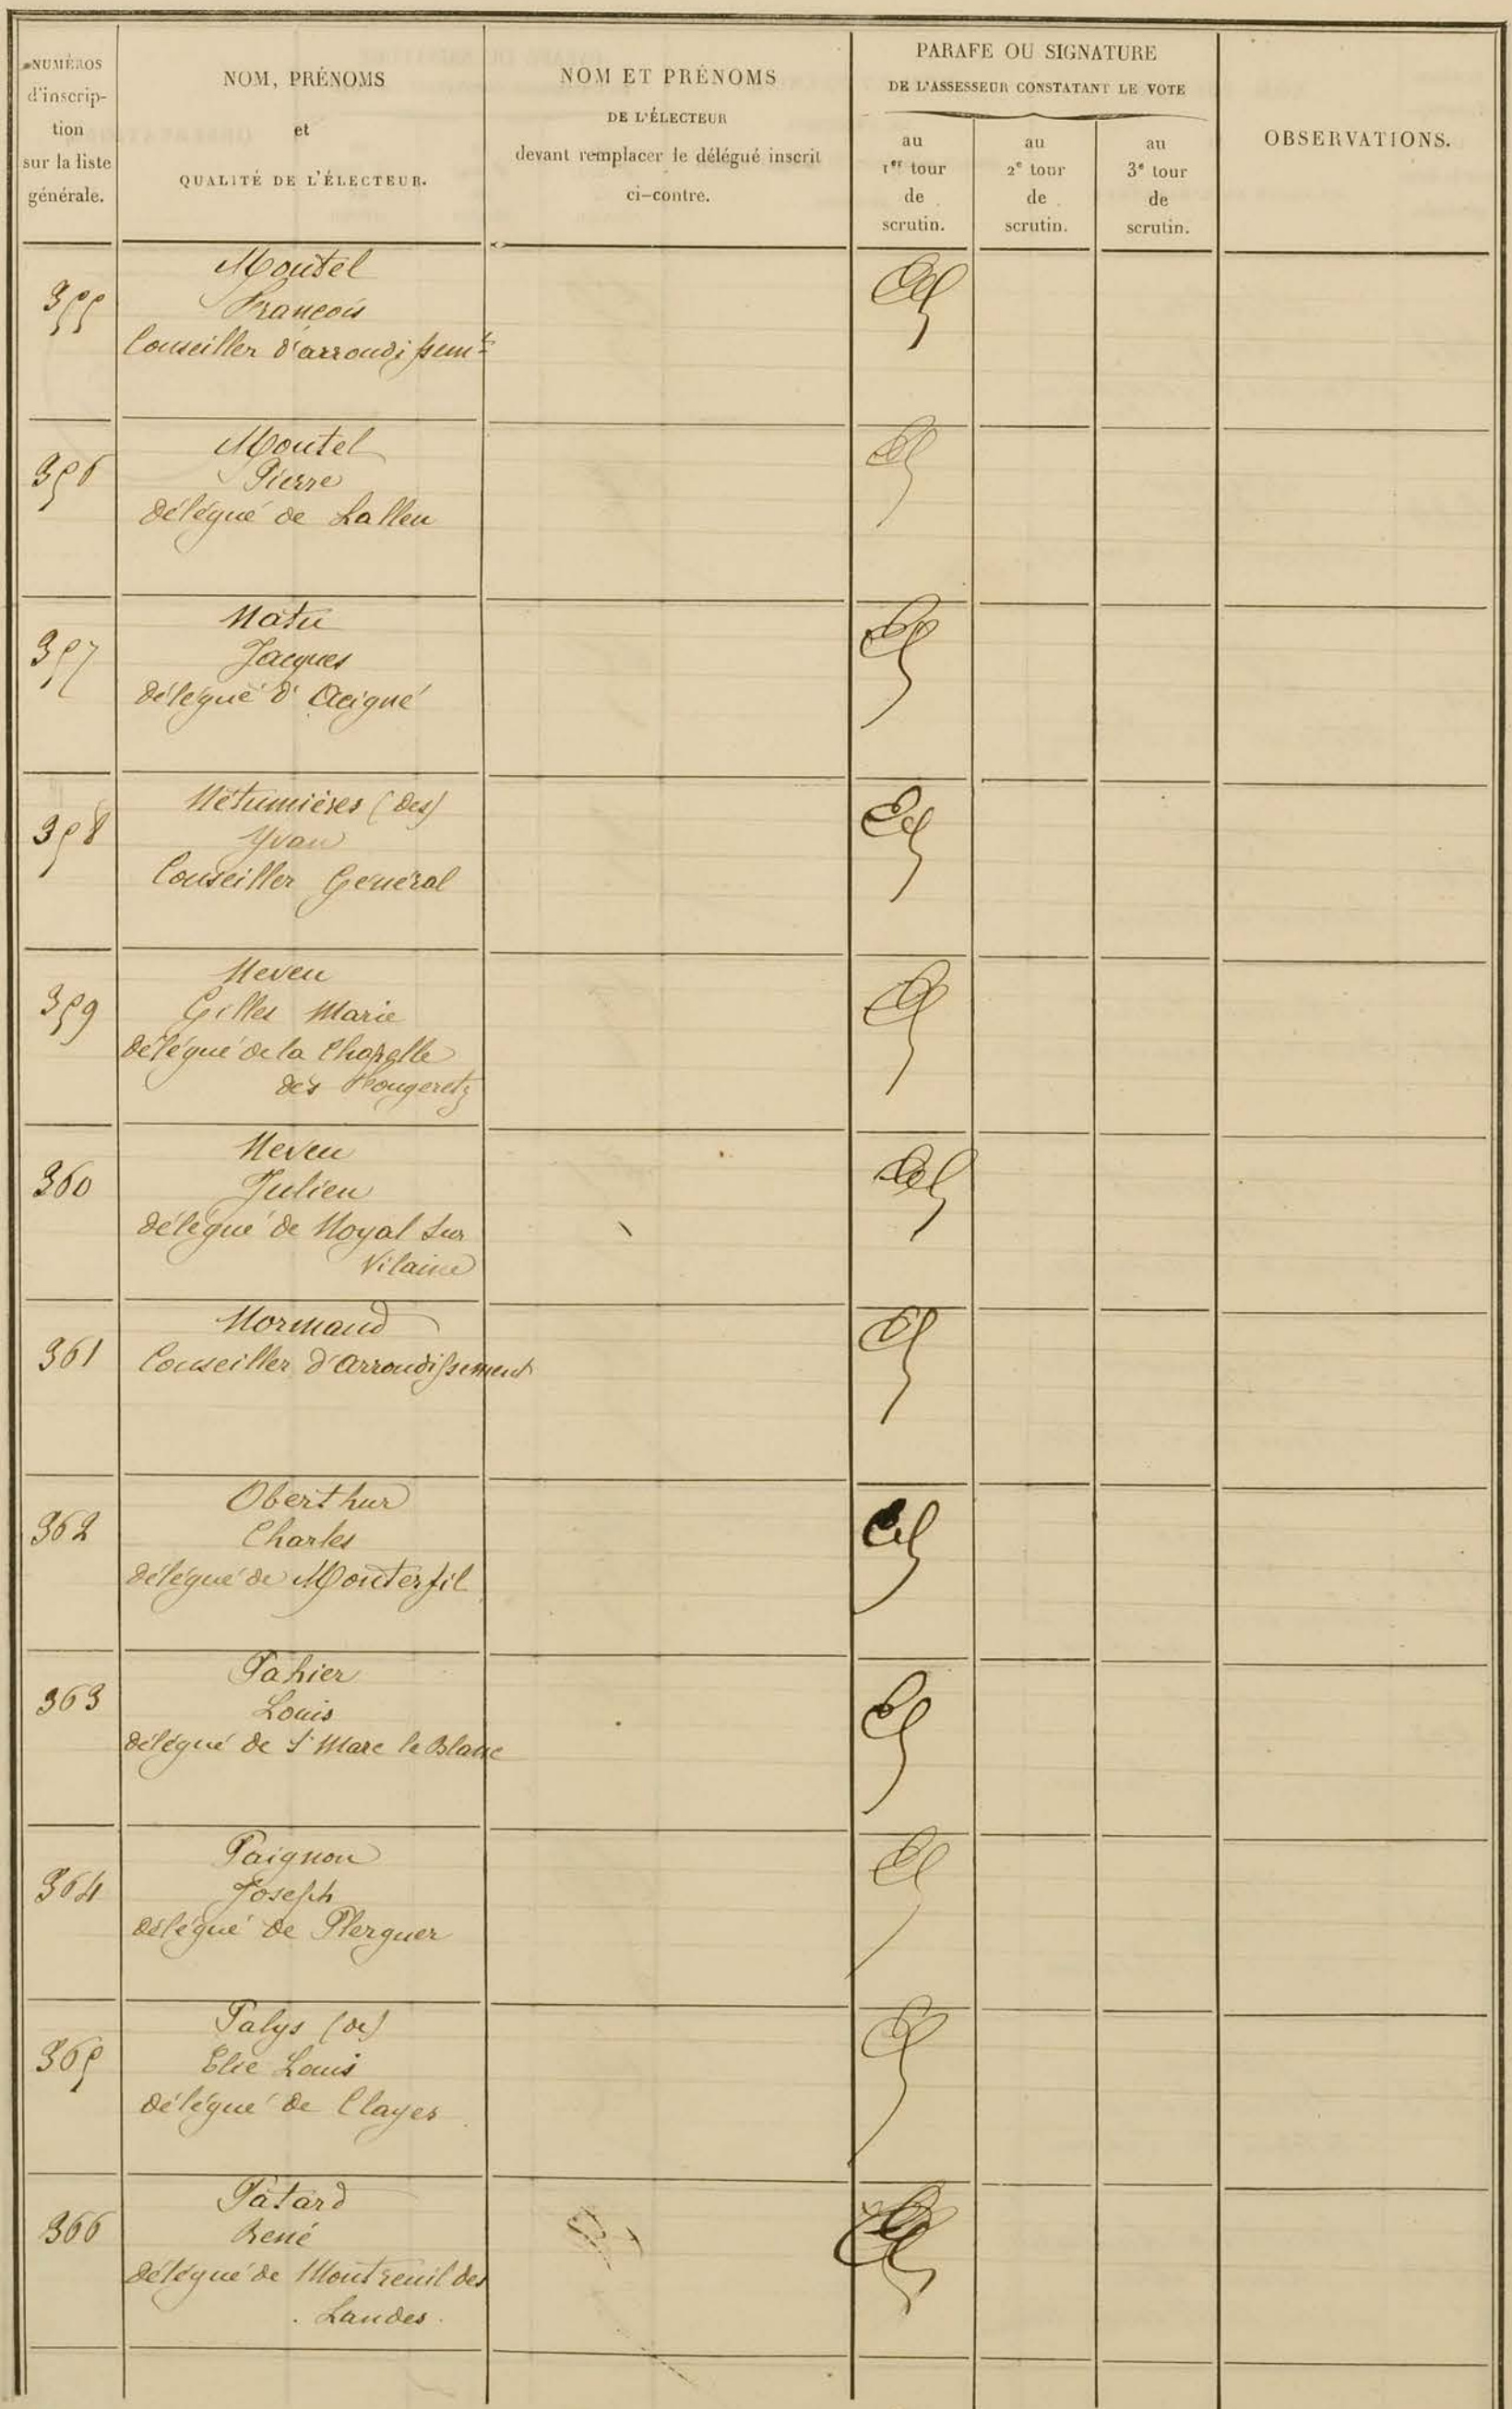 NUMÉROS
d'inscrip-
tion
sur la liste
générale.
NOM, PRÉNOMS
et
QUALITÉ DE L'ÉLECTEUR.
NOM ET PRÉNOMS
DE L'ÉLECTEUR
devant remplacer le délégué inscrit
ci-contre.
PARAFE OU SIGNATURE
DE L'ASSESSEUR CONSTATANT LE VOTE
au
1er tour
de
scrutin.
au
2e tour
de
scrutin.
au
3e tour
de
scrutin.
OBSERVATIONS.
355
Moutel
François
Conseiller d'arrondissemt
356
Moutel
Pierre
délégué de Lalleu
357
Natu
Jacques
délégué d'Acigné
358
Nétumières (des)
Yvan
Conseiller Général
359
Neveu
Gilles Marie
délégué de la Chapelle
des Fougeretz
360
Neveu
Julien
délégué de Noyal sur
Vilaine
361
Normand
Conseiller d'Arrondissement
362
Oberthur
Charles
délégué de Monterfil
363
Pahier
Louis
délégué de St Marc le Blanc
364
Paignon
Joseph
délégué de Plerguer
365
Palys (de)
Elie Louis
délégué de Clayes
366
Patard
René
délégué de Montreuil des
Landes